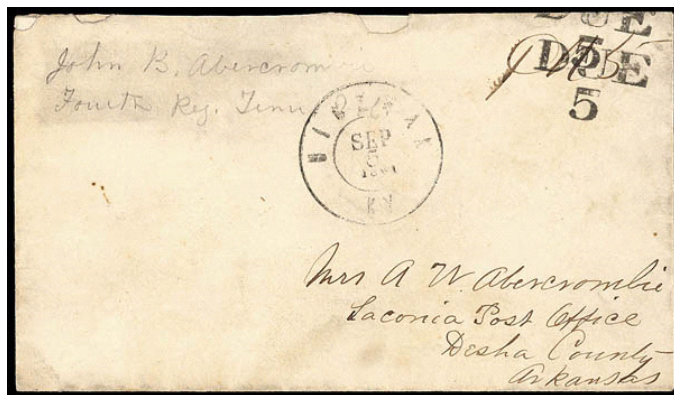 DUE
DUE
5
John B. Abercrombie
Fourth Reg. Tenn
HICKMAN
SEP
5
1861
KY
Mrs A W. Abercrombie
Laconia Post Office
Desha County
Arkansas